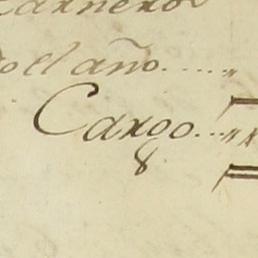 Carnero
o el año.....„
Cargo...„
8